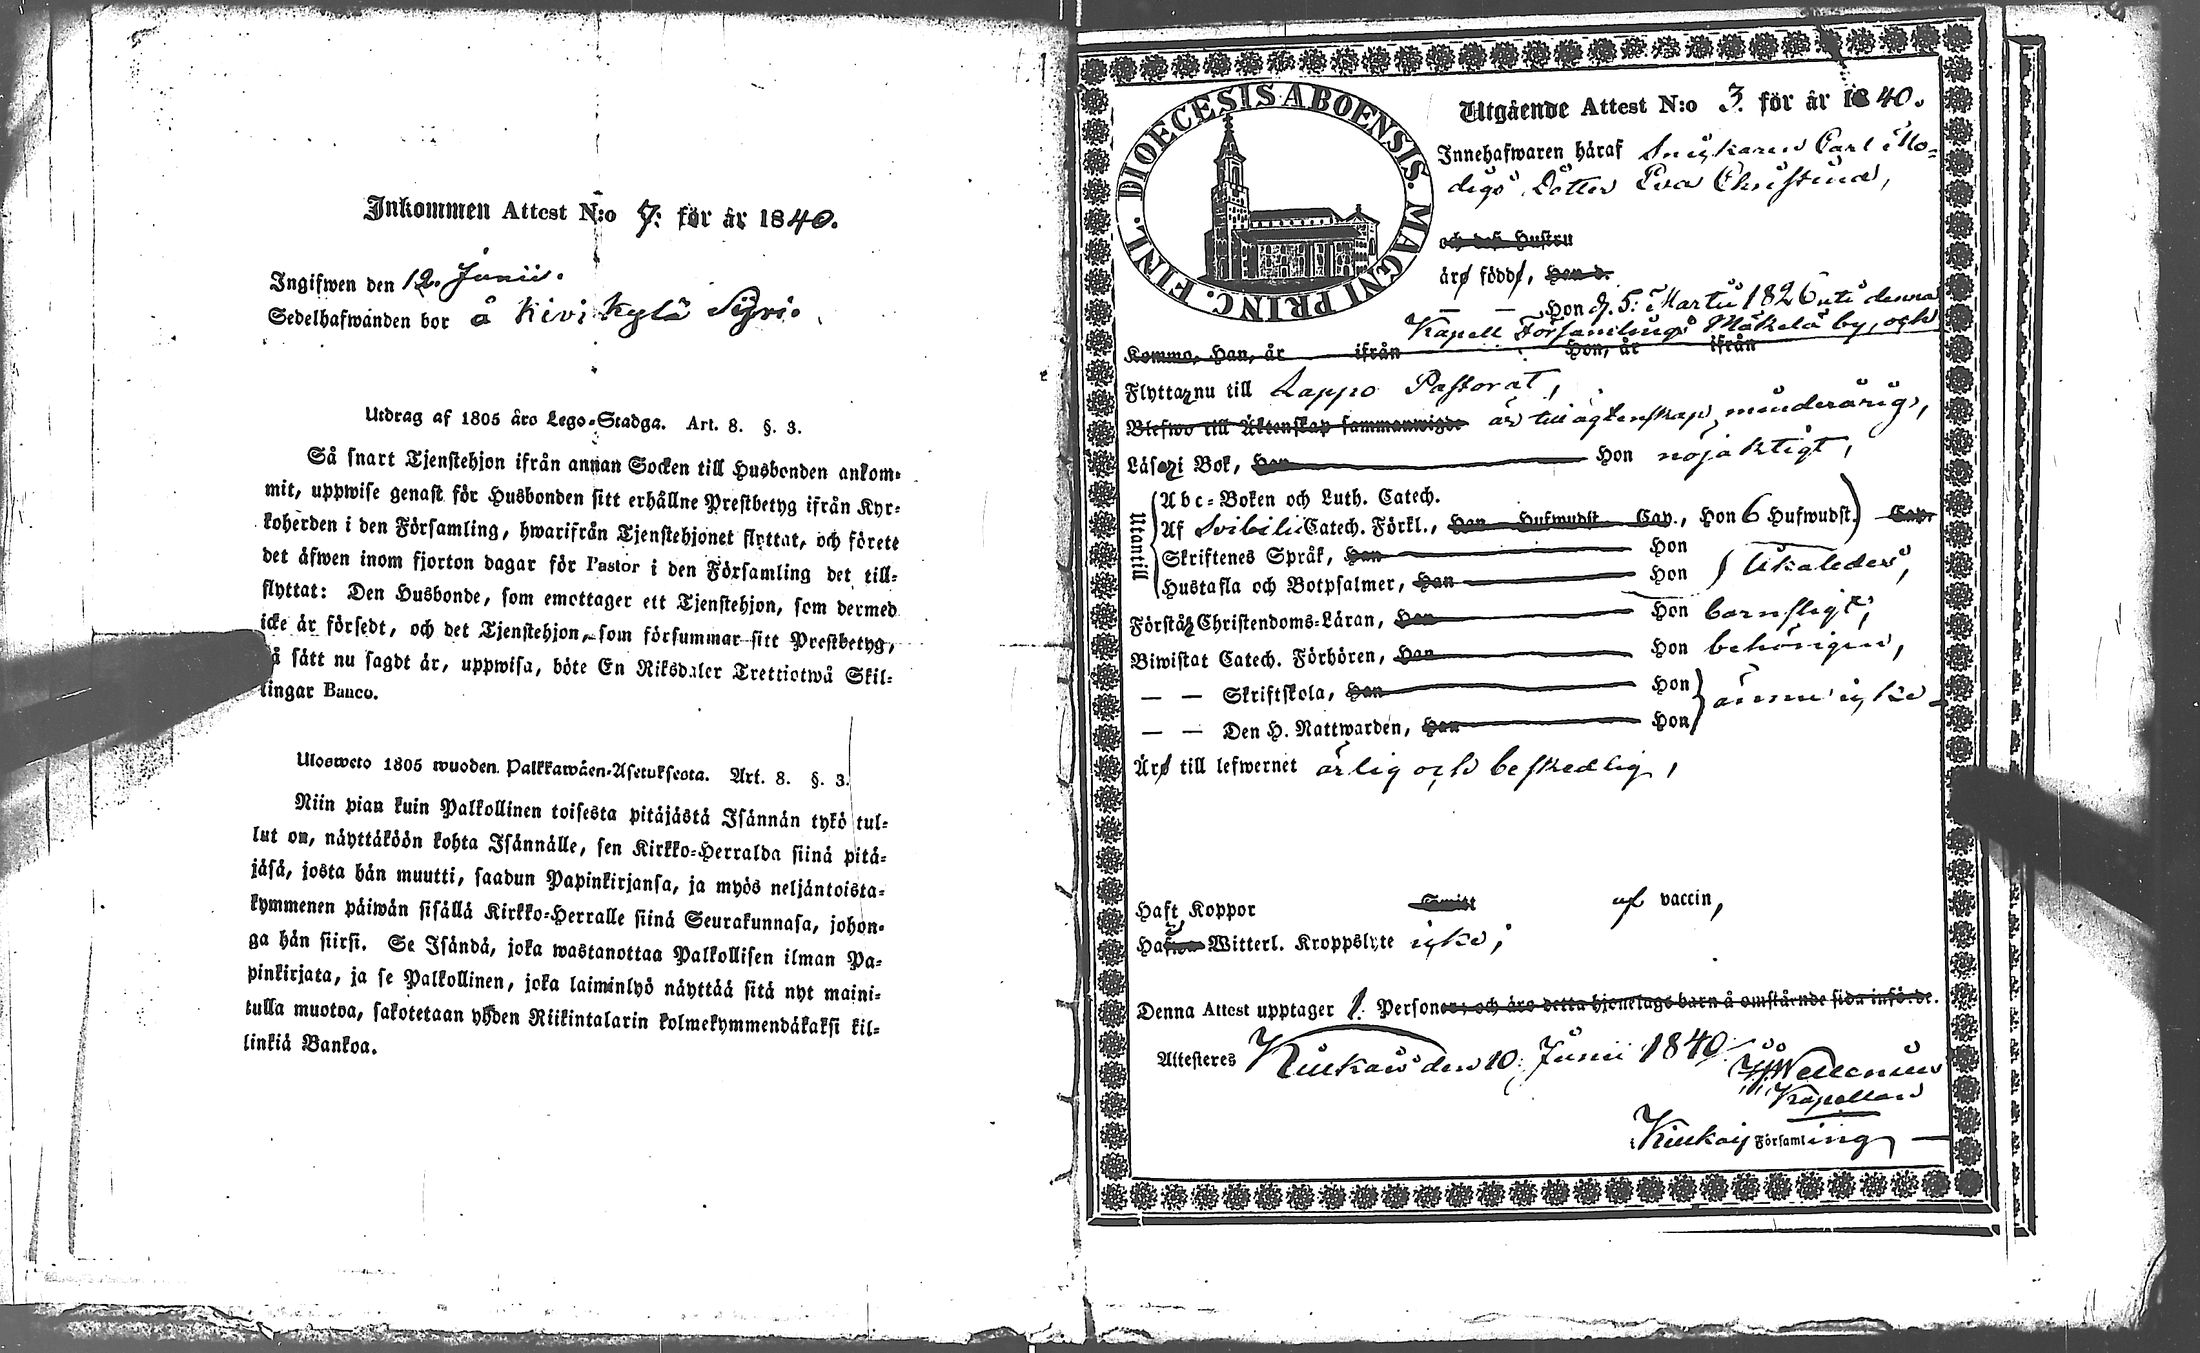 Inkommen Attest N:o 7. för år 1840.
Ingifwen den 12. Junii.
Sedelhafwanden bor å Kivikylä Syri.
Utdrag af 1805 års Lego-Stadga. Art. 8. §. 3.
Så snart Tjenstehjon ifrån annan Socken till Husbonden ankom-
mit, uppwise genast för Husbonden sitt erhållne Prestbetyg ifrån Kyr-
koherden i den Församling, hwarifrån Tjenstehjonet flyttat, och förete
det äfwen inom fjorton dagar för Pastor i den Församling det till-
flyttat: Den Husbonde, som emottager ett Tjenstehjon, som dermed
icke är försedt, och det Tjenstehjon, som försummar sitt Prestbetyg,
å sätt nu sagdt är, uppwisa, böte En Riksdaler Trettiotwå Skil-
lingar Banco.
Ulosweto 1805 wuoden Palkkawäen-Asetuksesta. Art. 8. §. 3.
Niin pian kuin Palkollinen toisesta pitäjästä Isännän tykö tul-
lut on, näyttäköön kohta Isännälle, sen Kirkko-Herralda siinä pitä-
jäsä, josta hän muutti, saadun Papinkirjansa, ja myös neljäntoista-
kymmenen päiwän sisällä Kirkko-Herralle siinä Seurakunnasa, johon-
ga hän siirsi. Se Isändä, joka wastanottaa Palkollisen ilman Pa-
pinkirjata, ja se Palkollinen, joka laiminlyö näyttää sitä nyt maini-
tulla muotoa, sakotetaan yhden Riikintalarin kolmekymmendäkaksi kil-
linkiä Bankoa.
DIOECESIS ABOENSIS. MAGNI PRINC. FINL.
Utgående Attest N:o 3. för år 1840.
Innehafwaren häraf Snickaren Carl Mo-
digs Dotter Eva Christina,
och dess Hustru
äro född, Han d.
— — Hon d. 5. Martii 1826 uti denna
Kapell Församlings Mäkelä by, och
Komme, Han, år ifrån Hon, år ifrån
Flyttar nu till Lappo Pastorat,
Blefwo till Äktenskap sammanwigde är till ägtenskap minderårig,
Läser i Bok, Han Hon nöjaktigt,
Utantill
Abc-Boken och Luth. Catech.
Af Svibilii Catech. Förkl., Han Hufwudst. Cap., Hon 6 Hufwudst. Cap.
Skriftenes Språk, Han Hon
Hustafla och Botpsalmer, Han Hon likaledes,
Förstår Christendoms-Läran, Han Hon barnsligt,
Biwistat Catech. Förhören, Han Hon behörigen,
— — Skriftskola, Han Hon
— — Den H. Nattwarden, Han Hon ännu icke
Äro till lefwernet ärlig och beskedlig,
Haft Koppor Smitt af vaccin,
Haft Witterl. Kroppslyte icke;
Denna Attest upptager 1. Personer; och äro detta hjonelags barn å omstående sida införde.
Attesteres Kiukais den 10. Junii 1840.
Kapellan
i Kiukais Församling